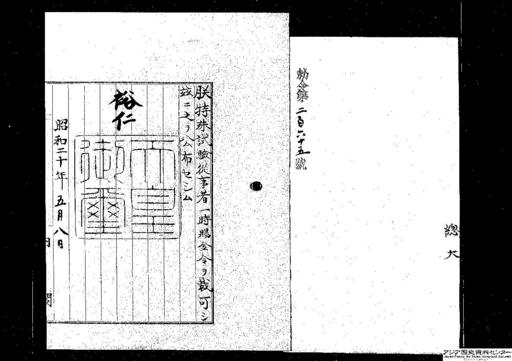 勅令第二百六十五號
總大
朕特殊試驗從事者一時賜金令ヲ裁可シ
茲ニ之ヲ公布セシム
裕仁
天皇御璽
昭和二十年五月八日
内閣
アジア歴史資料センター